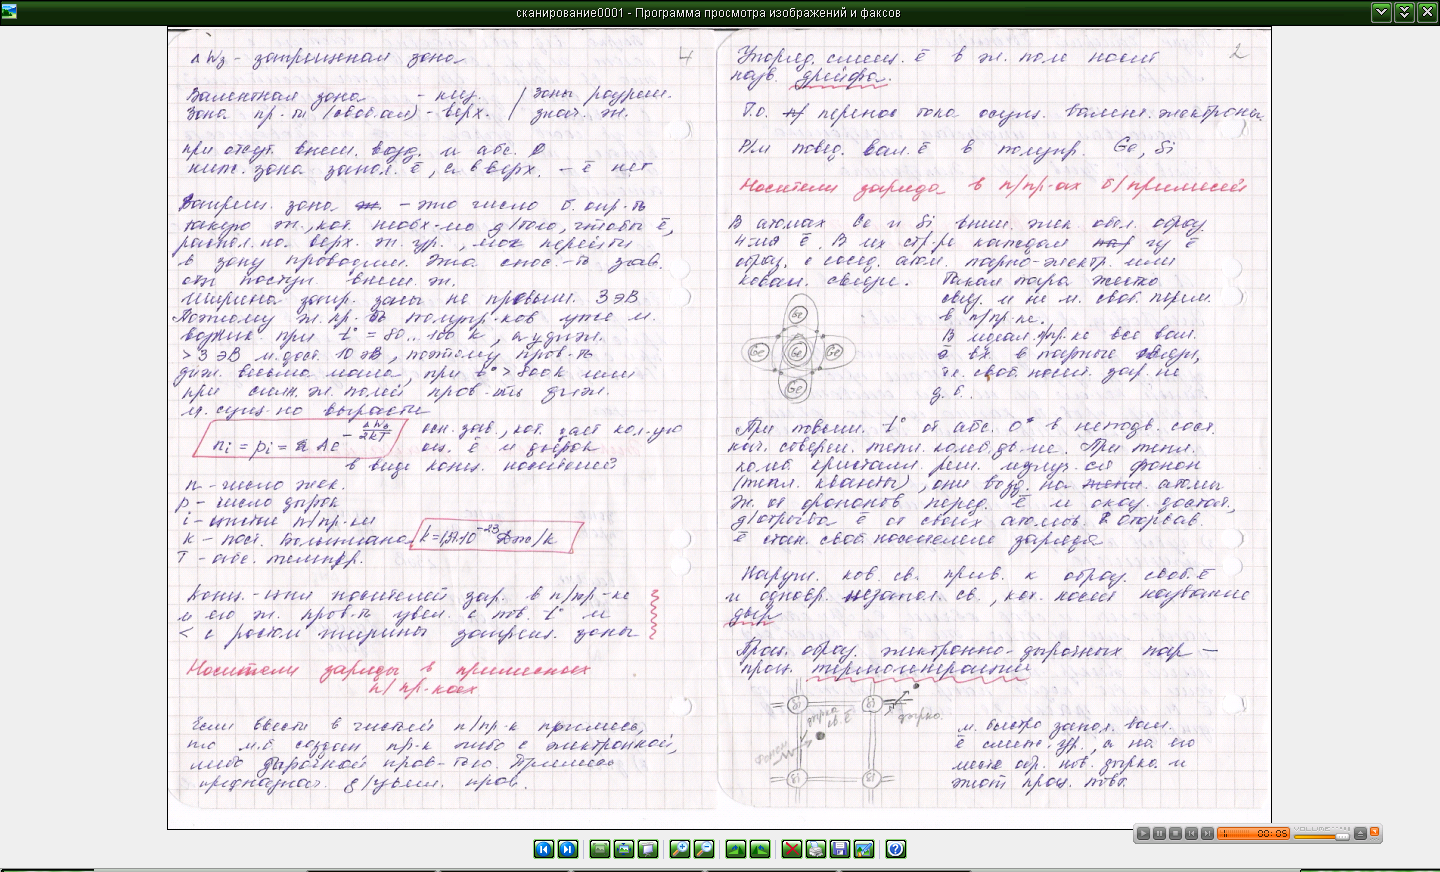 сканирование0001 - Программа просмотра изображений и факсов
ΔWз - запрещенная зона
4
Валентная зона - низ. / Зоны разреш.
Зона пр-ти (свободная) - верх. / знач. эн.
при отсут. внеш. возд. и абс. 0
ниж. зона запол. ē, а в верх. - ē нет
Запрещ. зона - это число б. опр-ть
такую эн., кот. необх-мо д/того, чтобы ē,
распол. на верх. эн. ур., мог перейти
в зону проводим. Эта спос-ть зав.
от поступ. внеш. эн.
Ширина запр. зоны не превыш. 3 эВ
Поэтому эл. пр-ть полупр-ков уже м.
возник. при t° = 80..100 К, а у диэл.
>3 эВ м. дост. 10 эВ, поэтому пров-ть
диэл. весьма мала, при t° > 800К или
при сильн. эл. полей пров-ть диэл.
м. сущ-но вырасти
ni = pi = Ae - ΔWз/2kT
осн. зав., кот. дает кол-ую
оц. ē и дырок
в виде конц. носителей
n - число элек.
p - число дырок
i - п/пр-ки
k - пост. Больцмана
k=1,37·10 -23 Дж/К
T - абс. темпер.
Конц-ция носителей зар. в п/пр-ке
и его эл. пров-ть увел. с пов. t° и
< с ростом ширины запрещ. зоны
Носители заряды в примесных
п/пр-ках
Если ввести в чистый п/пр-к примесь,
то м.б. создан пр-к либо с электронной,
либо дырочной пров-тью. Примесь
предназнач. д/увелич. пров.
Упоряд. смещ. ē в эл. поле носит
2
назв. дрейфа.
Т.о. перенос тока осущ. валент. электроны
Р/м повед. вал. ē в полупр. Ge, Si
Носители заряда в п/пр-ах б/примесей
В атомах Ge и Si внеш. элек. обол. образ.
4-мя ē. В их стр-ре каждая ē
образ. с сосед. атом. парно-электр. или
ковал. связи. Такая пара жестко
связ. и не м. своб. перем.
в п/пр-ке.
В идеал. п/пр-ке все вал.
ē вх. в парные связи,
т.е. своб. носит. зар. не
д.б.
Ge
Ge
Ge
Ge
Ge
При повыш. t° от абс. 0° в неподв. сост.
нач. соверш. тепл. колеб. дв-ие. При тепл.
колеб. кристалл. реш. излуч-ся фонон
(тепл. кванты), они возд. на атомы
Эн. от фононов перед. ē и оказ. достат.
д/отрыва ē от своих атомов. Оторвав.
ē стан. своб. носителем заряда
Наруш. ков. св. прив. к образ. своб. ē
и одновр. незапол. св., кот. носит название
дыр
Проц. образ. электронно-дырочных пар -
проц. термогенерации
дырка
св. ē
дырка
фонон
м. быстро запол. вал.
ē смеж. ур., а на его
месте обр. нов. дырка и
этот проц. повт.
00:05
VOLUME